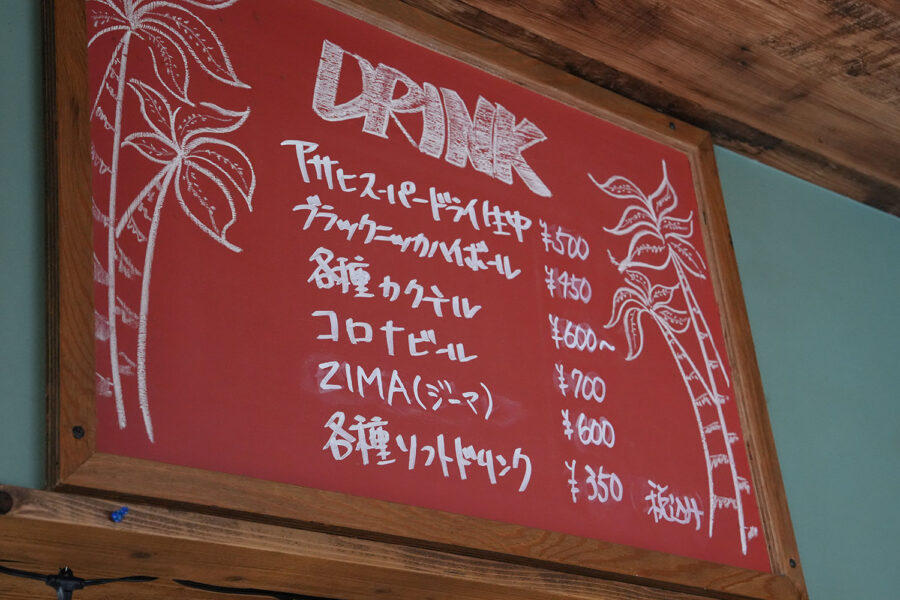 DRINK
アサヒスーパードライ生中 ¥500
ブラックニッカハイボール ¥450
各種カクテル ¥600~
コロナビール ¥700
ZIMA(ジーマ) ¥600
各種ソフトドリンク ¥350
税込み